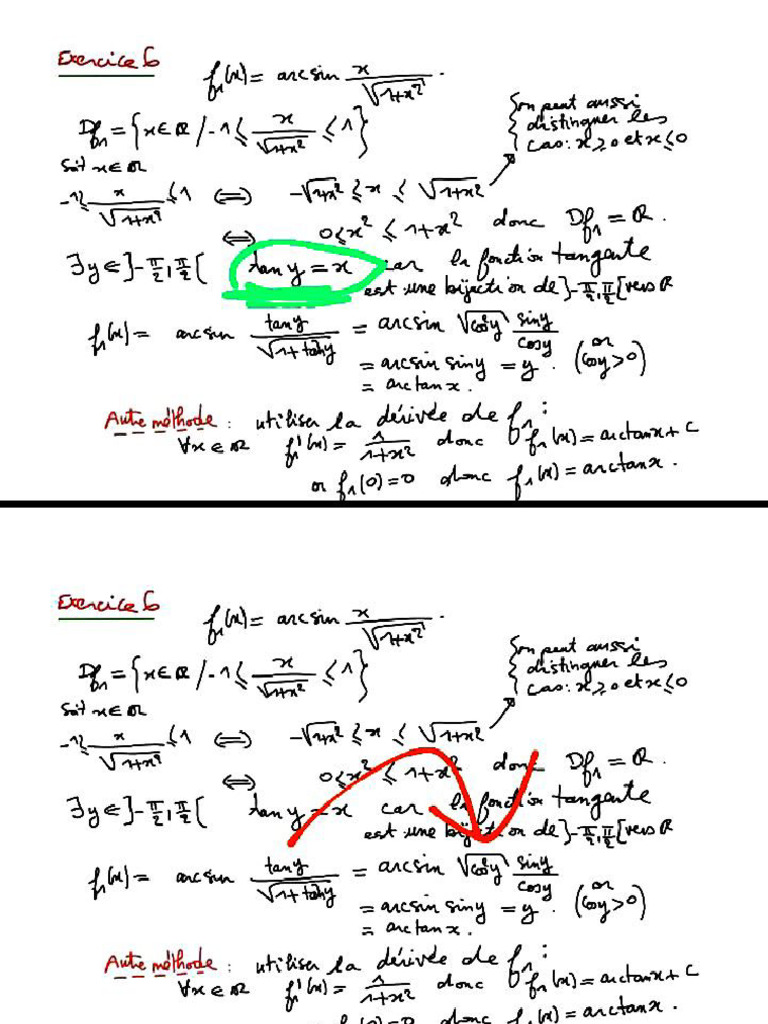 Exercice 6
f₁(x) = arcsin x/√(1+x²) .
Df₁ = {x ∈ ℝ / -1 ≤ x/√(1+x²) ≤ 1}
on peut aussi
distinguer les
cas : x ≥ 0 et x ≤ 0
Soit x ∈ ℝ
-1 ≤ x/√(1+x²) ≤ 1 ⟺ -√(1+x²) ≤ x ≤ √(1+x²)
⟺ 0 ≤ x² ≤ 1+x² donc Df₁ = ℝ .
∃ y ∈ ]-π/2, π/2[ tan y = x car la fonction tangente
est une bijection de ]-π/2, π/2[ vers ℝ
f₁(x) = arcsin tan y/√(1+tan²y) = arcsin √(cos²y) sin y/cos y
= arcsin sin y = y . (or cos y > 0)
= arctan x .
Autre méthode : utiliser la dérivée de f₁ :
∀x ∈ ℝ f₁'(x) = 1/(1+x²) donc f₁(x) = arctan x + C
or f₁(0) = 0 donc f₁(x) = arctan x .
Exercice 6
f₁(x) = arcsin x/√(1+x²) .
Df₁ = {x ∈ ℝ / -1 ≤ x/√(1+x²) ≤ 1}
on peut aussi
distinguer les
cas : x ≥ 0 et x ≤ 0
Soit x ∈ ℝ
-1 ≤ x/√(1+x²) ≤ 1 ⟺ -√(1+x²) ≤ x ≤ √(1+x²)
⟺ 0 ≤ x² ≤ 1+x² donc Df₁ = ℝ .
∃ y ∈ ]-π/2, π/2[ tan y = x car la fonction tangente
est une bijection de ]-π/2, π/2[ vers ℝ
f₁(x) = arcsin tan y/√(1+tan²y) = arcsin √(cos²y) sin y/cos y
= arcsin sin y = y . (or cos y > 0)
= arctan x .
Autre méthode : utiliser la dérivée de f₁ :
∀x ∈ ℝ f₁'(x) = 1/(1+x²) donc f₁(x) = arctan x + C
or f₁(0) = 0 donc f₁(x) = arctan x .